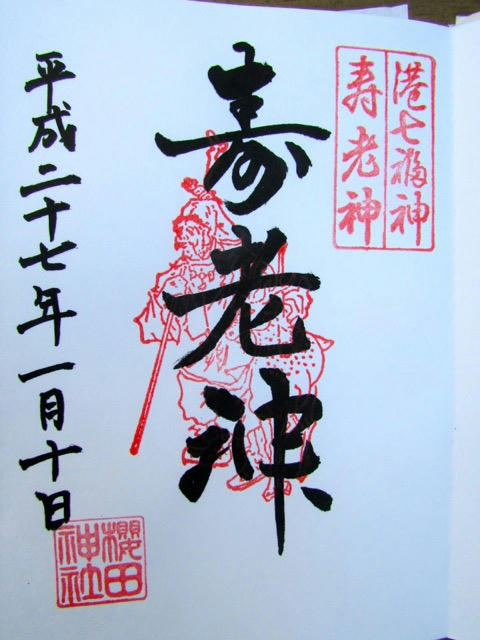 港七福神
寿老神
寿老神
平成二十七年一月十日
櫻田
神社